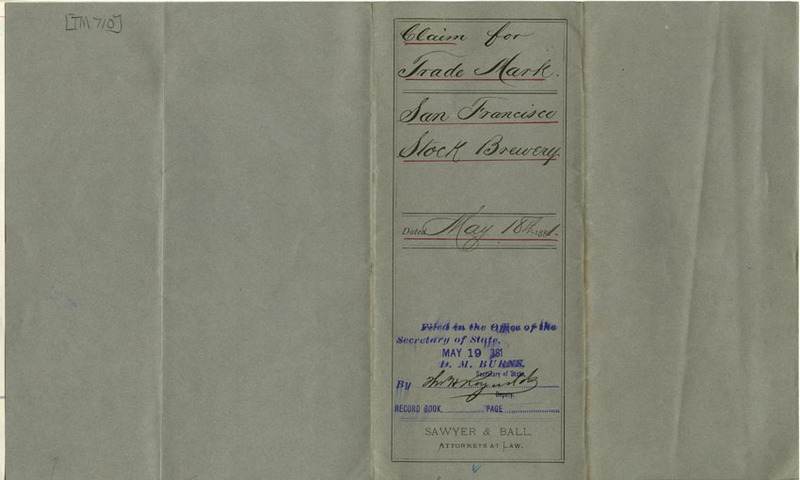 [TM 710]
Claim for
Trade Mark.
San Francisco
Stock Brewery.
Dated May 18th 1881.
Filed in the Office of the
Secretary of State,
MAY 19 1881
D. M. BURNS,
Secretary of State,
By
Deputy.
RECORD BOOK PAGE
SAWYER & BALL,
ATTORNEYS AT LAW.